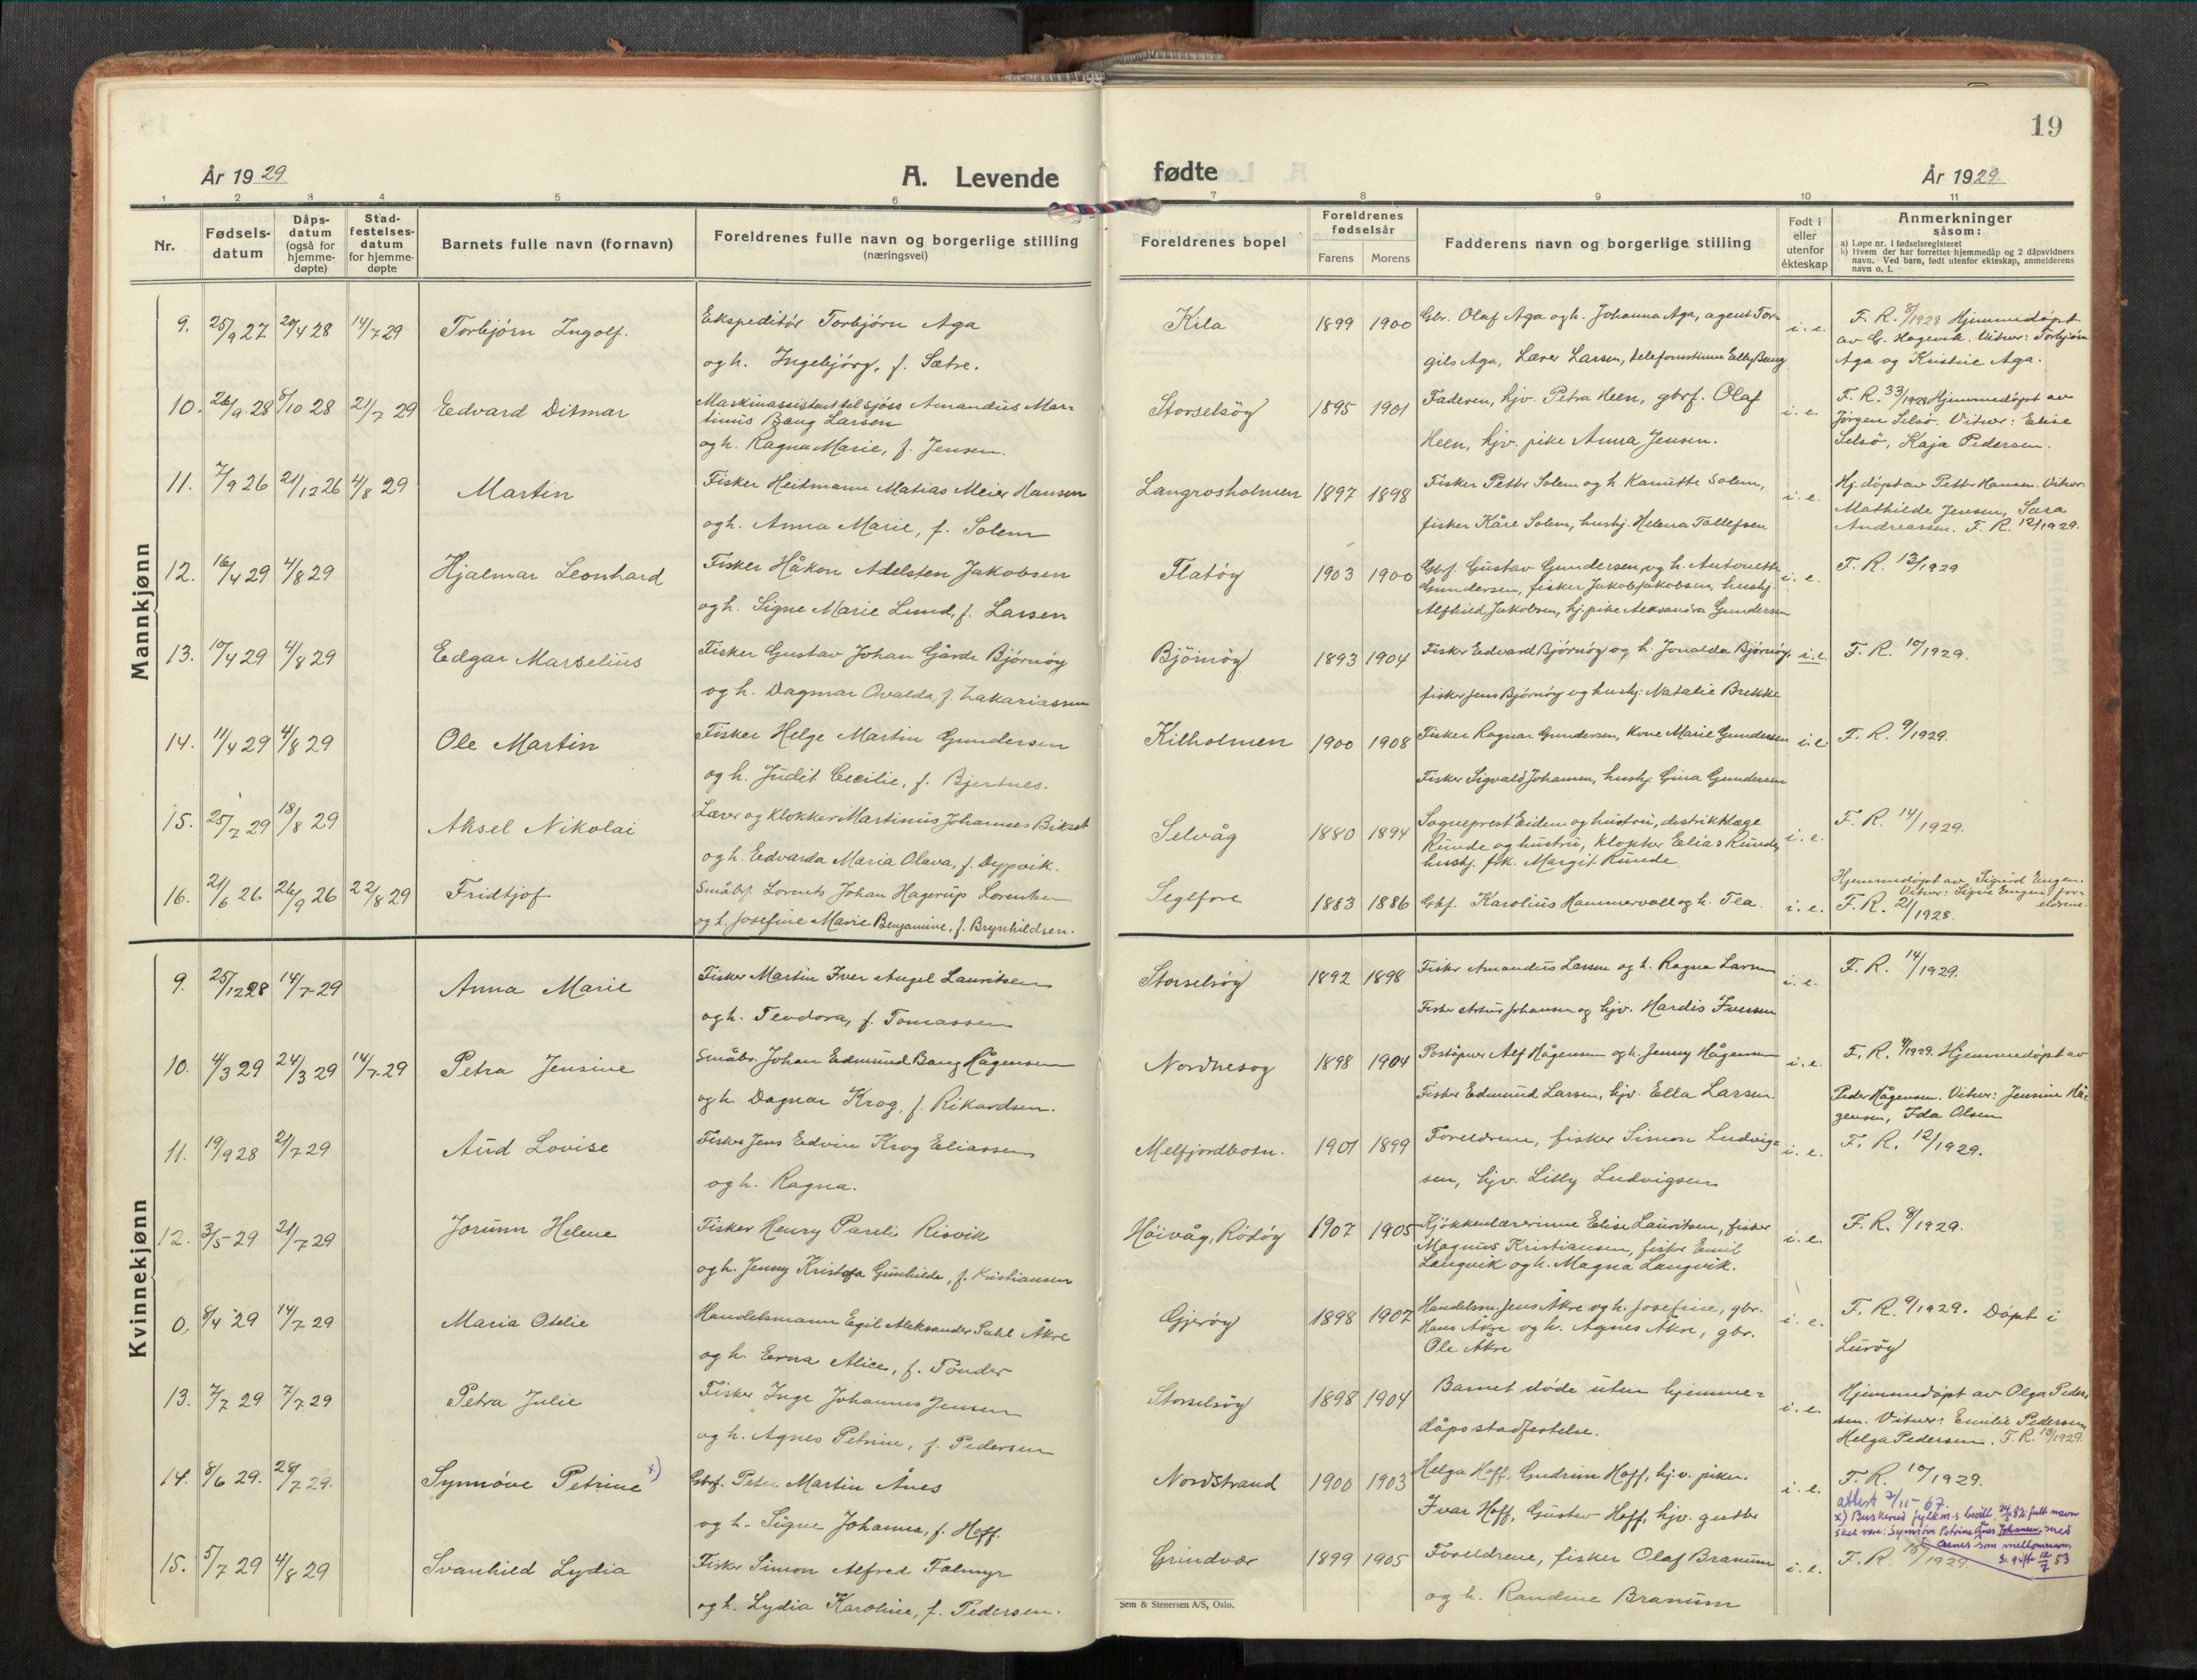 19
År 1929
A. Levende
fødte
År 1929.
1 2 3 4 5 6 7 8 9 10 11
Nr.
Fødsels-
datum
Dåps-
datum
(også for
hjemme-
døpte)
Stad-
festelses-
datum
for hjemme-
døpte
Barnets fulle navn (fornavn)
Foreldrenes fulle navn og borgerlige stilling
(næringsvei)
Foreldrenes bopel
Foreldrenes
fødselsår
Farens Morens
Fadderens navn og borgerlige stilling
Født i
eller
utenfor
ekteskap
Anmerkninger
såsom:
a) Løpe nr. i fødselsregisteret
b) Hvem der har forrettet hjemmedåp og 2 dåpsvidners
navn. Ved barn, født utenfor ekteskap, anmelderens
navn o. l.
Mannkjønn
9. 25/9 27 20/4 28 14/7 29 Torbjørn Ingolf.
Ekspeditør Torbjørn Aga
og h. Ingebjørg, f. Sætre.
Kila 1899 1900
Gbr. Olaf Aga og h. Johanna Aga, agent Tor-
gils Aga, Lærer Larsen, telefonistinne Elly Bang
i. e.
F. R. 8/1928 Hjemmedøpt
av G. Hagevik. Vitner: Torbjørn
Aga og Kristine Aga.
10. 26/9 28 8/10 28 21/7 29 Edvard Ditmar
Maskinassistent til sjøss Amandus Mar-
tinus Bang Larsen
og h. Ragna Marie, f. Jensen.
Storselsöy 1895 1901
Faderen, hjv. Petra Heen, gbrf. Olaf
Heen, hjv. pike Anna Jensen.
i. e.
F. R. 33/1928 Hjemmedøpt av
Jørgen Selsö. Vitner: Elise
Selsö, Kaja Pedersen.
11. 7/9 26 21/12 26 4/8 29 Martin
Fisker Heitmann Matias Meier Hansen
og h. Anna Marie, f. Solem
Langrosholmen 1897 1898
Fisker Petter Solem og h. Kanutte Solem,
fisker Kåre Solem, hushj. Helena Tollefsen
i. e.
Hj. døpt av Petter Hansen. Vitner:
Mathilde Jensen, Sara
Andreassen. F. R. 12/1929.
12. 16/4 29 4/8 29 Hjalmar Leonhard
Fisker Håkon Adelsten Jakobsen
og h. Signe Marie Lund, f. Larsen
Flatöy 1903 1900
Gbf. Gustav Gundersen, og h. Antonette
Gundersen, fisker Jakob Jakobsen, hushj.
Alfhild Jakobsen, hj. pike Aleksandra Gundersen
i. e.
F. R. 13/1929
13. 10/4 29 4/8 29 Edgar Marselius
Fisker Gustav Johan Gårde Bjørnöy
og h. Dagmar Ovalda, f. Zakariassen
Björnöy 1893 1904
Fisker Edvard Bjørnöy og h. Jonalda Bjørnöy,
fisker Jens Bjørnöy og hushj. Natalie Brekke
i. e.
F. R. 10/1929.
14. 11/4 29 4/8 29 Ole Martin
Fisker Helge Martin Gundersen
og h. Judit Cecilie, f. Bjertnes.
Kilholmen 1900 1908
Fisker Ragnar Gundersen, Kone Marie Gundersen
Fisker Sigvald Johansen, hushj. Gina Gundersen
i. e.
F. R. 9/1929.
15. 25/7 29 18/8 29 Aksel Nikolai
Lærer og Klokker Martinus Johannes Bikset
og h. Edvarda Maria Olava, f. Dypvik.
Selvåg 1880 1894
Sogneprest Eidem og hustru, distriktslæge
Runde og hustru, Klokker Elias Runde,
hushj. frk. Margit Runde
i. e.
F. R. 14/1929.
16. 21/6 26 26/9 26 22/8 29 Fridtjof
Småbr. Lorents Johan Hagerup Lorentsen
og h. Josefine Marie Benjamine, f. Brynhildsen.
Seglfore 1883 1886
Gbf. Karolius Hammervoll og h. Tea.
i. e.
Hjemmedøpt av Sigurd Eugen.
Vitner: Signe Eugen, for-
eldrene.
F. R. 21/1928.
Kvinnekjønn
9. 25/12 28 14/7 29 Anna Marie
Fisker Martin Iver Angel Lauritsen
og h. Teodora, f. Tomassen
Storselsöy 1892 1898
Fisker Amandus Larsen og h. Ragna Larsen
Fisker Artur Johansen og hjv. Hardis Iversen
i. e.
F. R. 14/1929.
10. 4/3 29 24/3 29 14/7 29 Petra Jensine
Småbr. Johan Edmund Bang Hågensen
og h. Dagmar Krog, f. Rikardsen.
Nordnesoy 1898 1904
Poståpner Alf Hågensen og h. Jenny Hågensen
Fisker Edmund Larsen, hjv. Ella Larsen.
i. e.
F. R. 4/1929. Hjemmedøpt av
Peder Hågensen. Vitner: Jensine Hå-
gensen, Ida Olsen
11. 19/9 28 21/7 29 Aud Lovise
Fisker Jens Edvin Krog Eliassen
og h. Ragna.
Melfjordbotn. 1901 1899
Foreldrene, fisker Simon Ludvig-
sen, hjv. Lilly Ludvigsen
i. e.
F. R. 12/1929.
12. 3/5 29 21/7 29 Jorunn Helene
Fisker Henry Pareli Risvik
og h. Jenny Kristofa Gunhilde, f. Kristiansen
Höivåg, Rödöy 1907 1905
Kjøkkenlærerinne Elise Lauritsen, fisker
Magnus Kristiansen, fisker Emil
Langvik og h. Magna Langvik.
i. e.
F. R. 8/1929.
0. 8/4 29 14/7 29 Maria Otelie
Handelsmann Egil Aleksander Dahl Åkre
og h. Erna Alice, f. Tönder
Gjeröy 1898 1907
Handelsm. Jens Åkre og h. Josefine, gbr.
Hans Åkre og h. Agnes Åkre, gbr.
Ole Åkre
i. e.
F. R. 9/1929. Døpt i
Luröy
13. 7/7 29 7/7 29 Petra Julie
Fisker Inge Johannes Jensen
og h. Agnes Petrine, f. Pedersen
Storselsöy 1898 1904
Barnet døde uten hjemme-
dåpsstadfestelse.
i. e.
Hjemmedøpt av Olga Peder-
sen. Vitner: Emilie Pedersen
Helga Pedersen. F. R. 18/1929.
14. 8/6 29. 28/7 29. Synnöve Petrine x)
Gbrf. Peter Martin Ånes
og h. Signe Johanna, f. Hoff.
Nordstrand 1900 1903
Helga Hoff, Gudrun Hoff, hj.v. piker.
Ivar Hoff, Gustav Hoff, hjv. gutter
i. e.
F. R. 10/1929.
attest 7/11-67.
x) Buskerud fylkm.s bevill. 24/5 82: fullt navn
skal være: Synnöve Petrine Ånes Johansen, med
Aanes som mellomnavn.
Se gift 12/7 53
15. 5/7 29 4/8 29 Svanhild Lydia
Fisker Simon Alfred Falmyr
og h. Lydia Karoline, f. Pedersen.
Grindvær 1899 1905
Foreldrene, fisker Olaf Branum
og h. Randine Branum
i. e.
F. R. 15/1929
Sem & Stenersen A/S, Oslo.